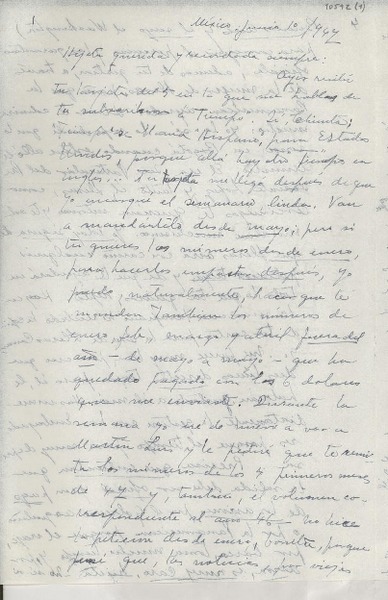 10592 (1)
México, junio 1o, 1947
Hijita querida y recordada siempre:
Ayer recibí
tu tarjeta del 5 en la que me hablas de
tu subscripción a Tiempo.
se llama Hispano, para Estados
Unidos, porque allá hay otro Tiempo en
inglés... Tu tarjeta me llega después de que
yo encargué el semanario lindo. Van
a mandártelo desde mayo; pero si
tú quieres los números desde enero,
para hacerlos empastar después, yo
puedo, naturalmente, hacer que te
manden también los números de
enero, feb., marzo y abril fuera del
año - de mayo a mayo - que ha
quedado pagado con los 6 dólares
que me enviaste. Durante la
semana yo iré de nuevo a ver a
Martín Luis y le pediré que te remi-
ta los números de los 4 primeros meses
de 47 y, también, el volumen co-
rrespondiente al año 46 - no hice
petición desde enero, bonita, porque
pensé que, las noticias, viejas